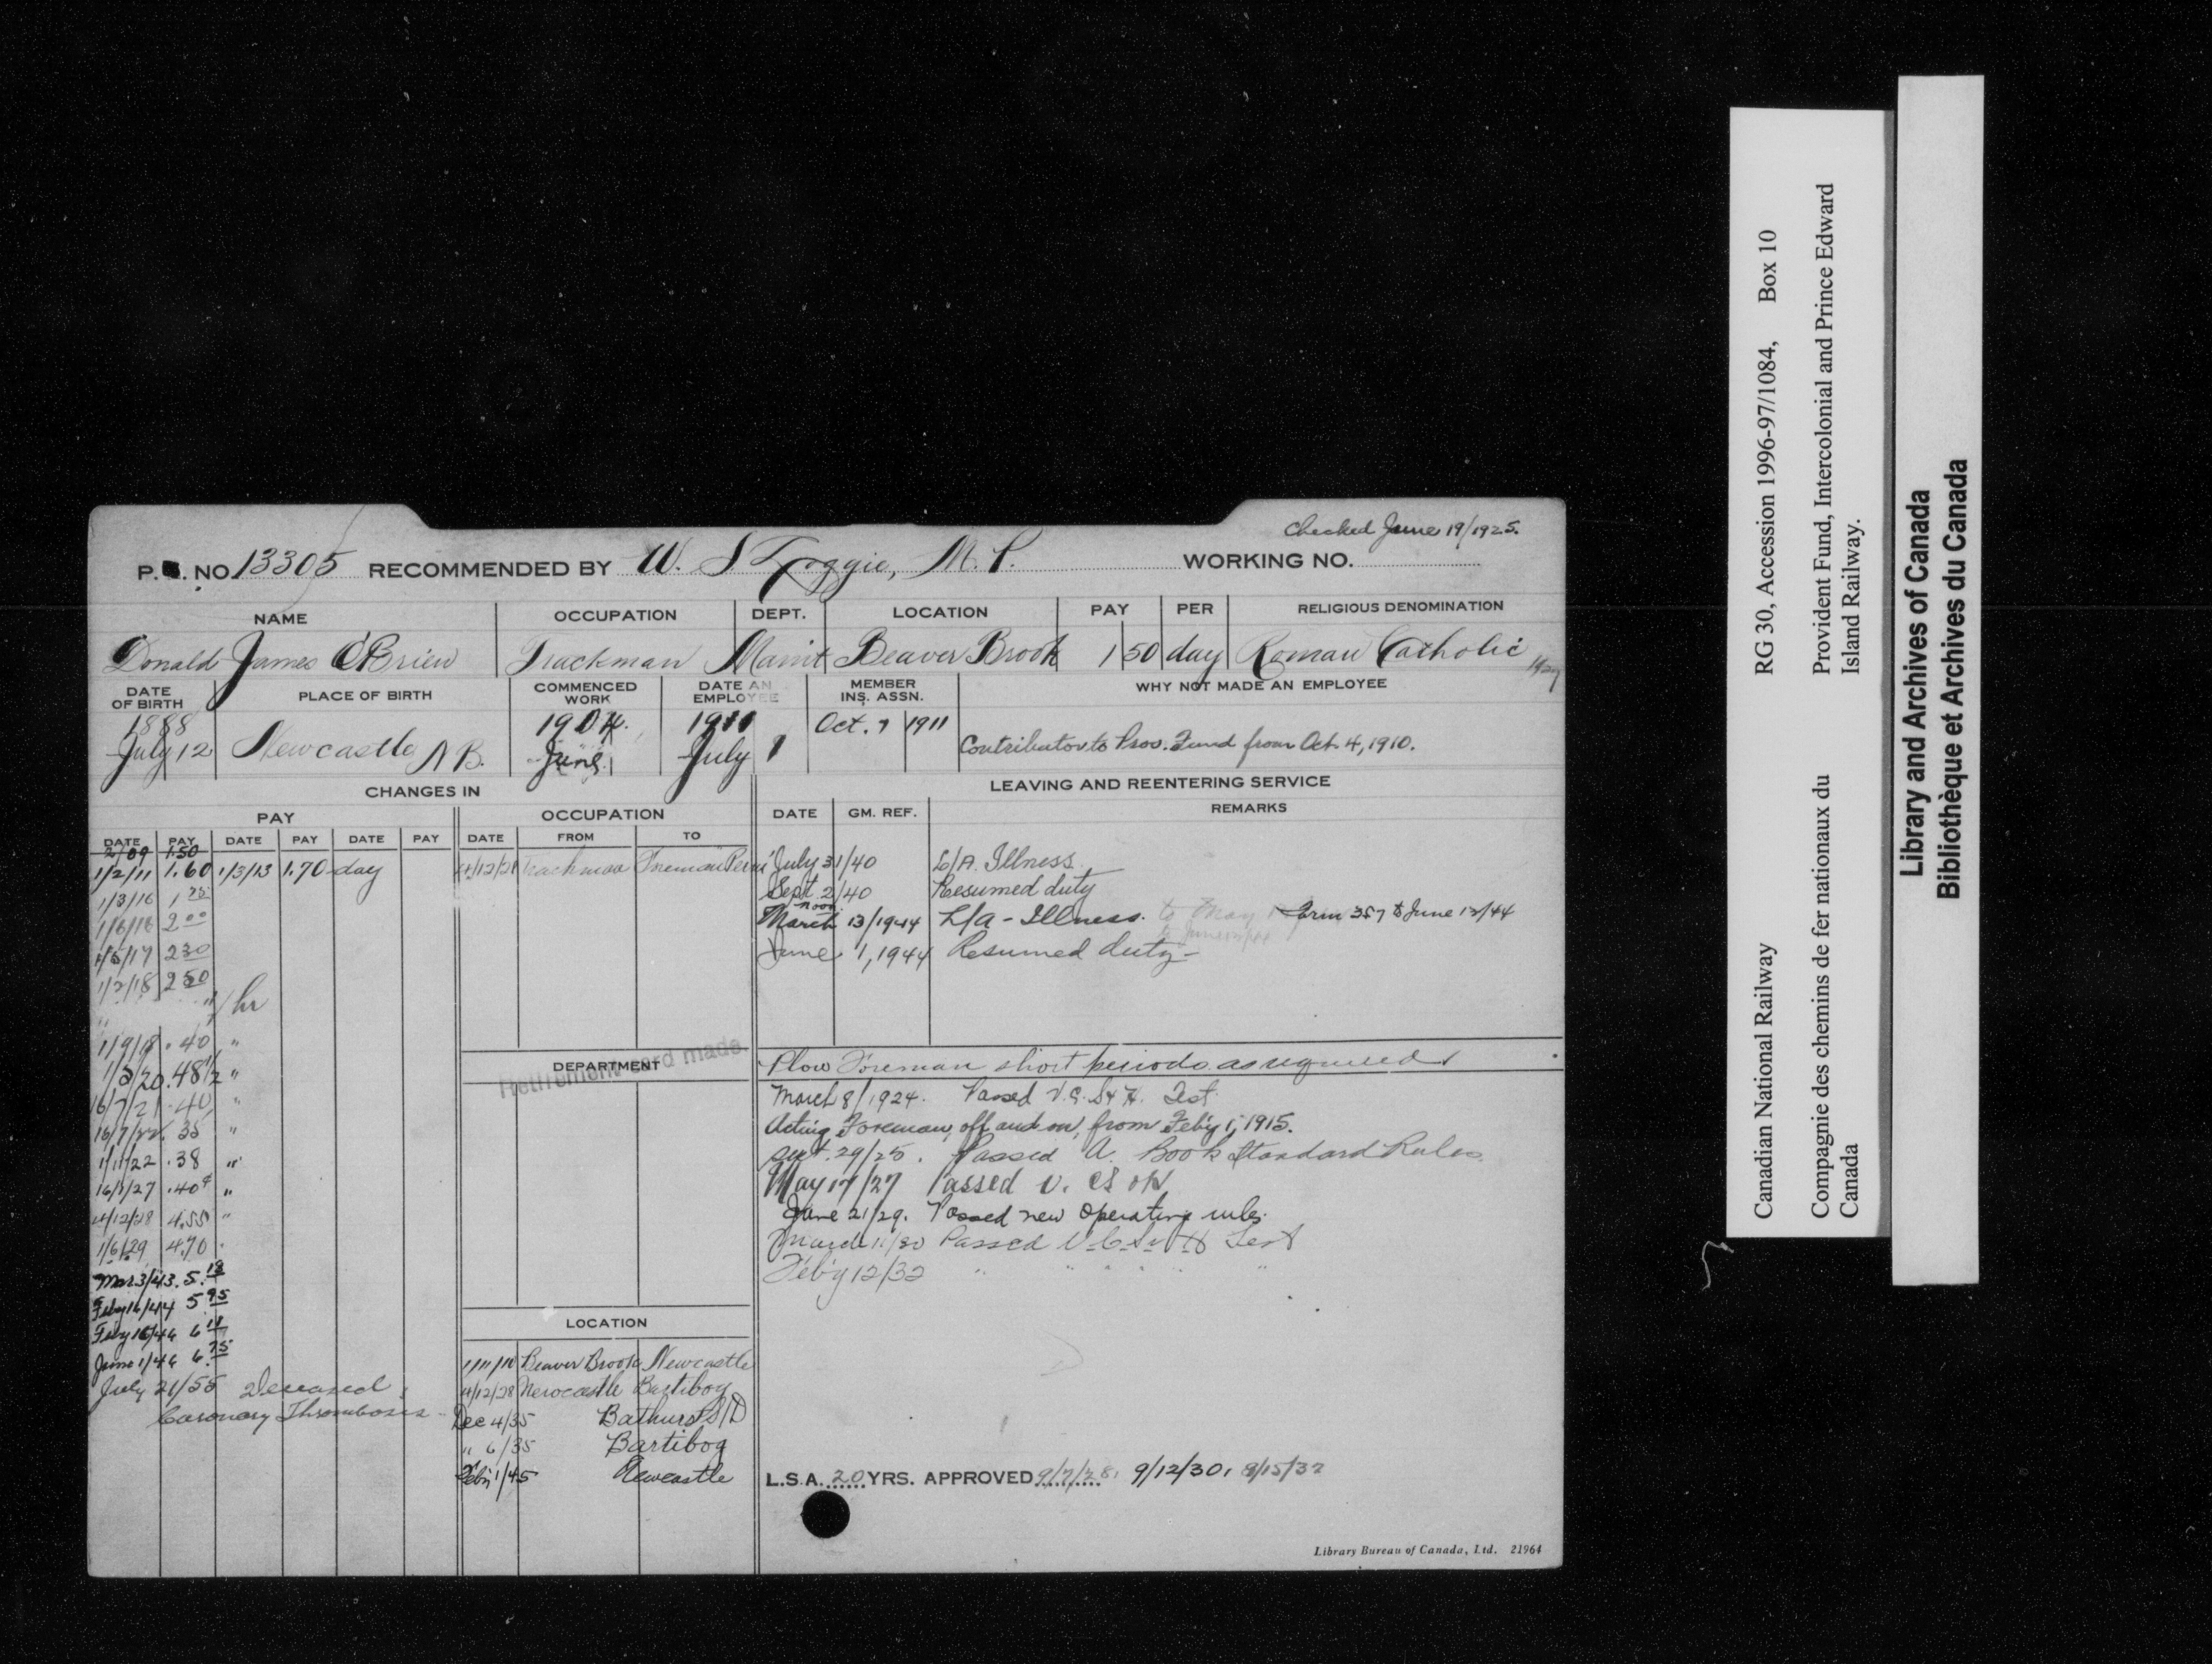 Checked June 19/1925.
P. NO. 13305 RECOMMENDED BY W. S. Loggie, M.P. WORKING NO.
NAME OCCUPATION DEPT. LOCATION PAY PER RELIGIOUS DENOMINATION
Donald James O'Brien Trackman Maint Beaver Brook 1 50 day Roman Catholic
DATE OF BIRTH PLACE OF BIRTH COMMENCED WORK DATE AN EMPLOYEE MEMBER INS. ASSN. WHY NOT MADE AN EMPLOYEE
1888 1904. 1911 Oct. 7 1911
July 12 Newcastle N B. June 1 July 1 Contributor to Prov. Fund from Oct. 4, 1910.
CHANGES IN LEAVING AND REENTERING SERVICE
PAY OCCUPATION DATE GM. REF. REMARKS
DATE PAY DATE PAY DATE PAY DATE FROM TO
2/09 1.50
1/2/11 1.60 1/3/13 1.70 day
1/3/16 1 75
1/6/16 2 00
1/5/17 2 30
1/2/18 2 50
"/hr
1/9/18 .40 "
1/5/20 .48 1/2 "
16/7/21 .40 "
16/7/22 .35 "
1/11/22 .38 "
16/1/27 .40 "
4/12/28 4.55 "
1/6/29 4.70 "
Mar 3/43. 5.18
Feby 16/44 5 95
Feby 16/46 6 11
June 1/46 6.75
July 21/55 Deceased.
Coronary Thrombosis
4/12/28 Trackman Foreman Perm
DEPARTMENT
Retirement card made
LOCATION
1/11/18 Beaver Brook Newcastle
4/12/28 Newcastle Bartibog
Dec 4/35 Bathurst S/D
" 6/35 Bartibog
Feby 1/45 Newcastle
July 31/40 L/A. Illness
Sept 2/40 Resumed duty
noon
March 13/1944 L/a - Illness. to May Form 357 to June 12/44
June 1, 1944 Resumed duty -
Plow Foreman short periods as required
March 8/1924. Passed V.C.S & H. Test.
Acting Foreman, off and on, from Feb'y 1, 1915.
Sept. 29/25. Passed A. Book Standard Rules.
May 17/27 Passed V. CS & H
June 21/29. Passed new operating rules.
March 11/30 Passed V-C-S & H Test
Feb'y 12/32 " " " " " "
L.S.A. 20 YRS. APPROVED 9/7/28, 9/12/30, 8/15/32
Library Bureau of Canada, Ltd. 21964
Canadian National Railway RG 30, Accession 1996-97/1084, Box 10
Compagnie des chemins de fer nationaux du Canada
Provident Fund, Intercolonial and Prince Edward Island Railway.
Library and Archives of Canada
Bibliothèque et Archives du Canada